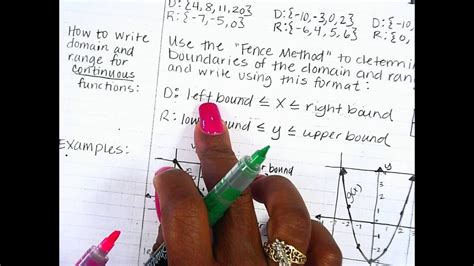 D: {4, 8, 11, 20}
R: {-7, -5, 0}
D: {-10, -3, 0, 2}
R: {-6, 4, 5, 6}
D: {-10,
R: {0,
How to write
domain and
range for
continuous
functions:
Use the "Fence Method" to
boundaries of the domain and
and write using this format:
D: left bound ≤ x ≤ right bound
R: ≤ y ≤ upper bound
Examples:
bound
g(x)